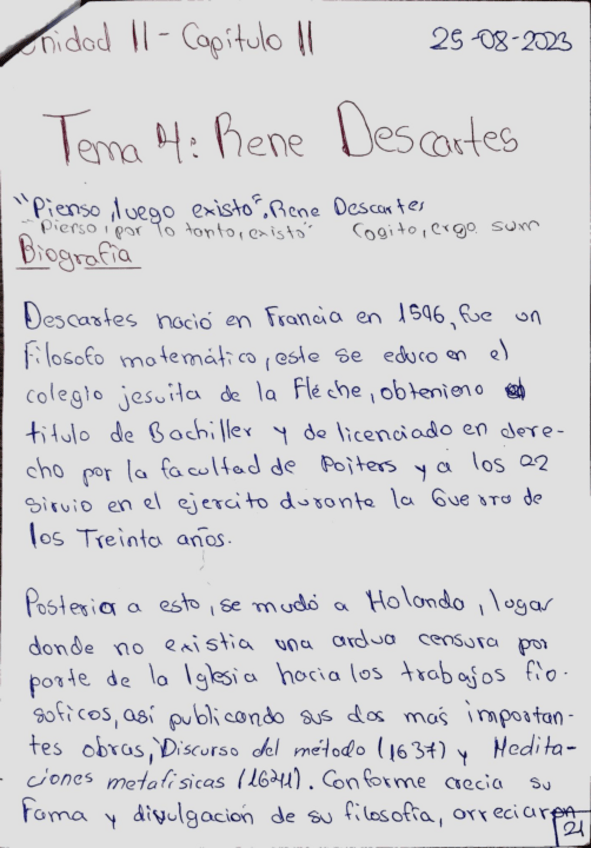 Unidad II - Capitulo II
25-08-2023
Tema 4: Rene Descartes
"Pienso, luego existo". Rene Descartes
"Pienso, por lo tanto, existo" Cogito, ergo sum
Biografía
Descartes nació en Francia en 1596, fue un
filosofo matemático, este se educo en el
colegio jesuita de la Fléche, obtenieno el
titulo de Bachiller y de licenciado en dere-
cho por la facultad de Poiters y a los 22
sirvio en el ejercito durante la Guerra de
los Treinta años.
Posterior a esto, se mudó a Holanda, lugar
donde no existia una ardua censura por
parte de la Iglesia hacia los trabajos fio-
soficos, así publicando sus dos mas importan-
tes obras, Discurso del método (1637) y Medita-
ciones metafisicas (1641). Conforme crecia su
Fama y divulgación de su filosofía, arreciaron
21